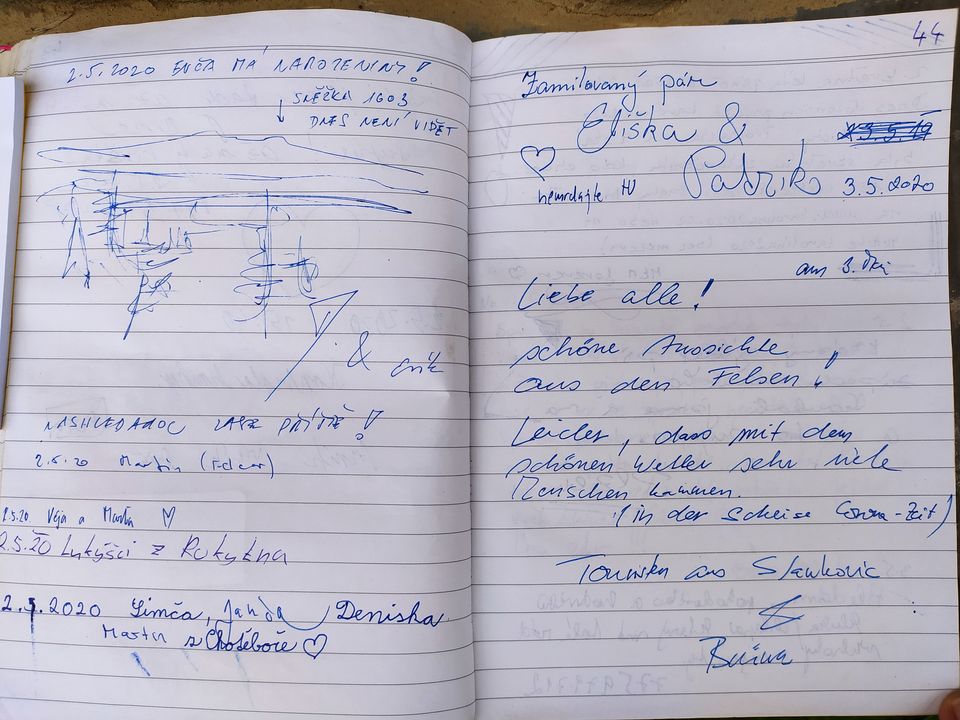 2.5.2020 ENČA MÁ NAROZENINY!
↓ SNĚŽKA 1603
DNES NENÍ VIDĚT
&
NASHLEDANOU ZASE PŘÍŠTĚ!
2.5.20 Martin
2.5.20. Vėja a Martin ♡
2.5.20 Lukýšci z Rokytna
2.5.2020 Simča, Janda, Deniska
Martin z Chotěboře ♡
44
Zamilovaný pár
Eliška &
♡ Patrik
3.5.2020
am 3. Mai
Liebe alle!
schöne Aussichte
aus den Felsen!
Leider, dass mit dem
schönen Wetter sehr viele
Menschen kammen.
(in der Scheise Corona-Zeit)
Touristen aus